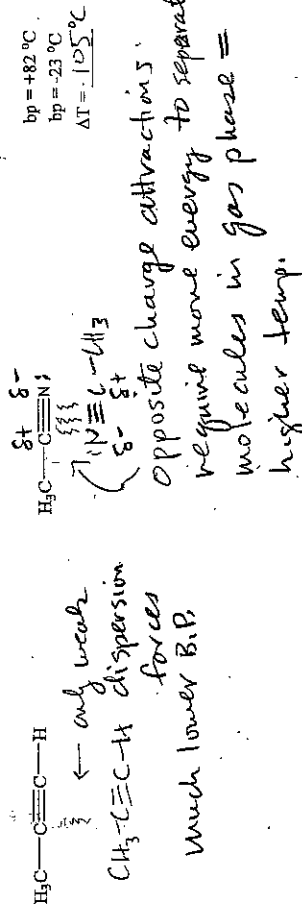 H₃C—C≡C—H
← only weak
CH₃-C≡C-H dispersion
forces
much lower B.P.
δ+ δ-
H₃C—C≡N:
:N≡C-CH₃
δ- δ+
opposite charge attractions.
require more energy to separate
molecules in gas phase =
higher temp.
bp = +82 °C
bp = -23 °C
ΔT = 105°C